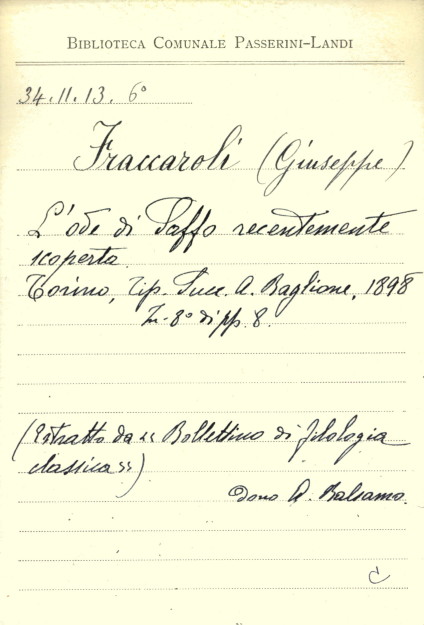 BIBLIOTECA COMUNALE PASSERINI-LANDI
34.11.13. 6°
Fraccaroli (Giuseppe)
L'ode di Saffo recentemente
scoperta.
Torino, Tip. Succ. A. Baglione, 1898
In-8° di pp. 8.
(Estratto da «Bollettino di filologia
classica»)
Dono A. Balsamo.
C